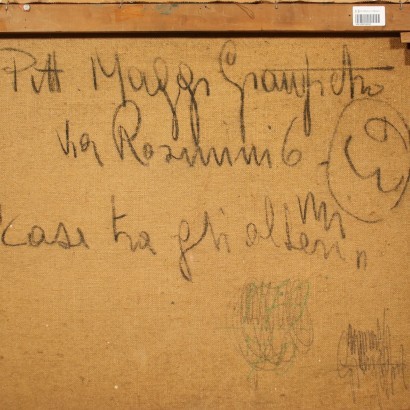 Pitt. Maggi Giampietro
via Rosmini 6 -
"case tra gli alberi"